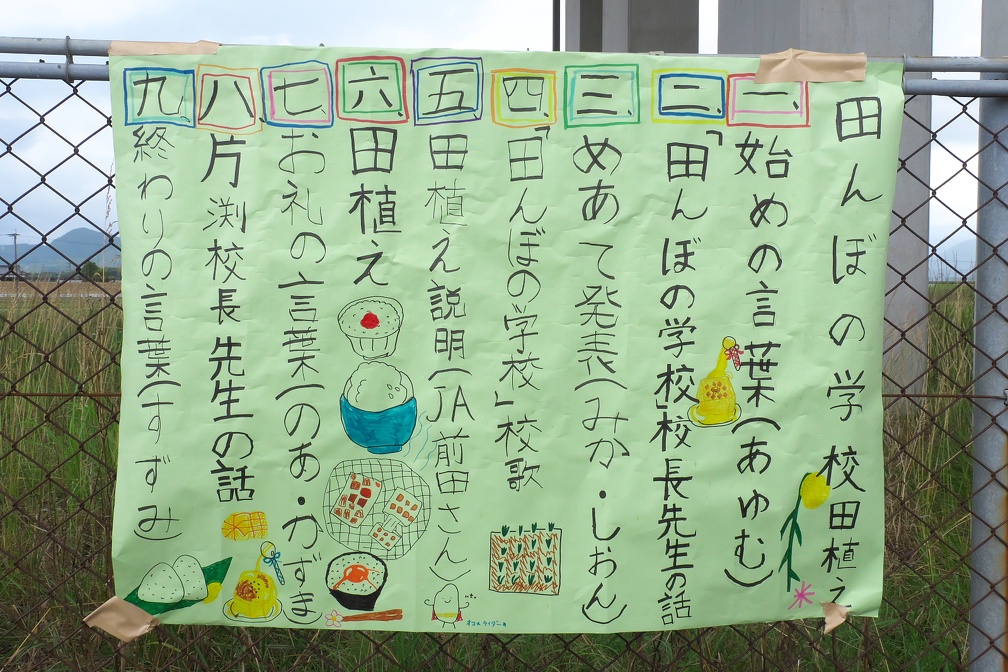 田んぼの学校田植え
一、始めの言葉(あゆむ)
二、「田んぼの学校」校長先生の話
三、めあて発表(みか・しおん)
四、「田んぼの学校」校歌
五、田植え説明(JA前田さん)
六、田植え
七、お礼の言葉(のあ・かずま)
八、片渕校長先生の話
九、終わりの言葉(すずみ)
オコメライダー